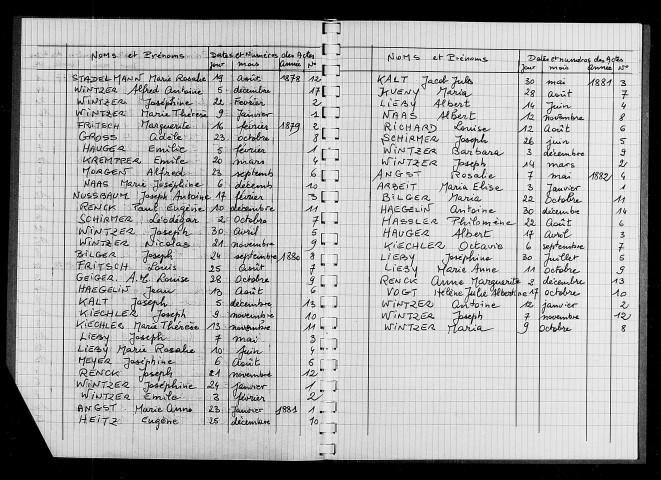 Noms et Prénoms Dates et Numéros des Actes
jour mois Année N°
STADELMANN Marie Rosalie 19 août 1878 12
WINTZER Alfred Antoine 5 décembre 17
WINTZER Joséphine 22 Fevrier 2
WINTZER Marie Thérèse 9 Janvier 1
FRITSCH Marguerite 16 février 1879 2
GROSS Adèle 23 octobre 8
HAUGER Emilie 5 février 1
KREMPPER Emile 20 mars 4
MORGEN Alfred 23 septemb 6
NAAS Marie Joséphine 6 décemb 10
NUSSBAUM Joseph Antoine 17 février 3
RENCK Paul Eugène 10 décembre 11
SCHIRMER Léodégar 2 Octobre 7
WINTZER Joseph 30 Avril 5
WINTZER Nicolas 21 novembre 9
BILGER Joseph 24 septembre 1880 8
FRITSCH Louis 25 Août 7
GEIGER Louise 28 Octobre 9
HAEGELIN Jean 13 Août 6
KALT Joseph 5 décembre 13
KIECHLER Joseph 9 novembre 10
KIECHLER Marie Thérèse 13 novembre 11
LIEBY Joseph 7 mai 3
LIEBY Marie Rosalie 10 Juin 4
MEYER Joséphine 6 Août 5
RENCK Joseph 21 novembre 12
WINTZER Joséphine 24 Janvier 1
WINTZER Emile 3 février 2
ANGST Marie Anne 23 Janvier 1881 1
HEITZ Eugène 25 décembre 10
Noms et Prénoms Dates et numéros des Actes
jour mois Année N°
KALT Jacob Jules 30 mai 1881 3
KUENY Maria 28 août 7
LIEBY Albert 14 Juin 4
NAAS Albert 12 novembre 8
RICHARD Louise 12 Août 6
SCHIRMER Joseph 26 juin 5
WINTZER Barbara 3 décembre 9
WINTZER Joseph 14 mars 2
ANGST Rosalie 7 mai 1882 4
ARBEIT Maria Elise 3 Janvier 1
BILGER Maria 22 octobre 11
HAEGELIN Antoine 30 décembre 14
HASSLER Philomène 22 Août 6
HAUGER Albert 17 Avril 3
KIECHLER Octavie 6 septembre 7
LIEBY Joséphine 30 Juillet 5
LIEBY Marie Anne 11 Octobre 9
RENCK Anne Marguerite 2 décembre 13
VOGT Hélène Julie Albertine 17 octobre 10
WINTZER Antoine 12 janvier 2
WINTZER Joseph 7 novembre 12
WINTZER Maria 9 octobre 8